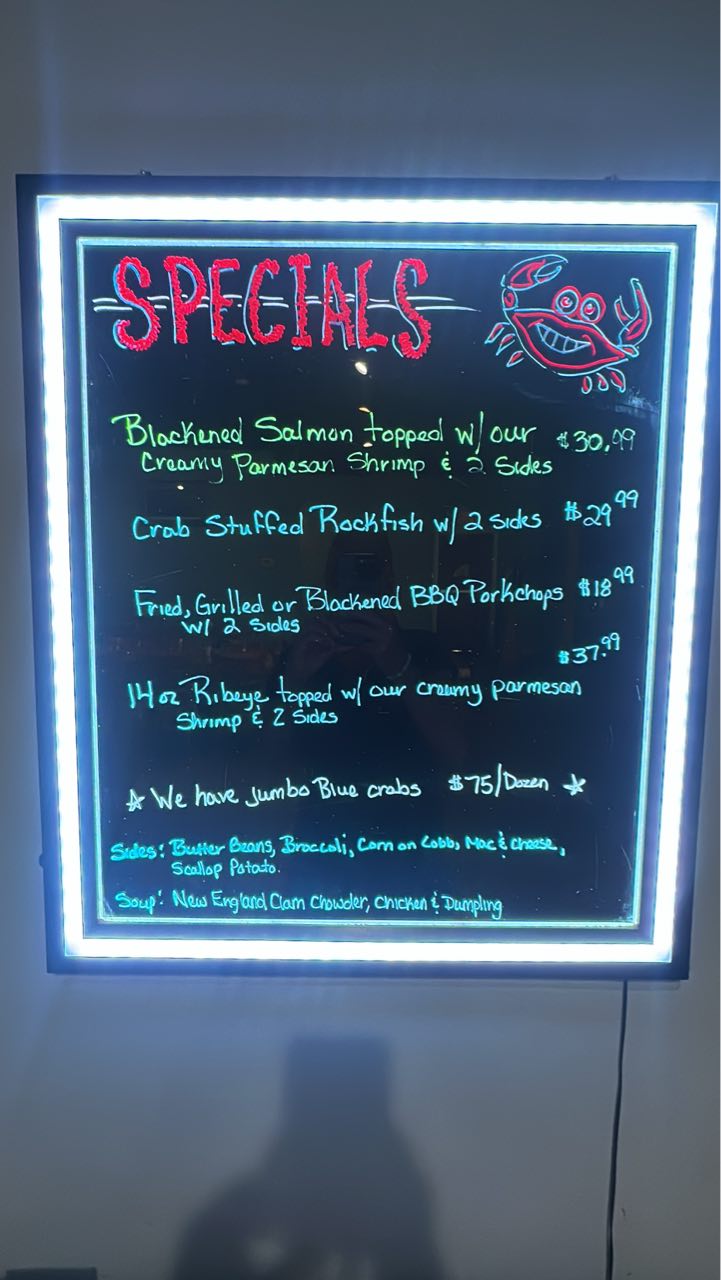 SPECIALS
Blackened Salmon topped w/ our $30.99
Creamy Parmesan Shrimp & 2 Sides
Crab Stuffed Rockfish w/ 2 sides $29.99
Fried, Grilled or Blackened BBQ Porkchops $18.99
w/ 2 Sides
$37.99
14 oz Ribeye topped w/ our creamy parmesan
Shrimp & 2 Sides
☆ We have Jumbo Blue crabs $75/Dozen ☆
Sides: Butter Beans, Broccoli, Corn on Cobb, Mac & Cheese,
Scallop Potato.
Soup: New England Clam Chowder, Chicken & Dumpling